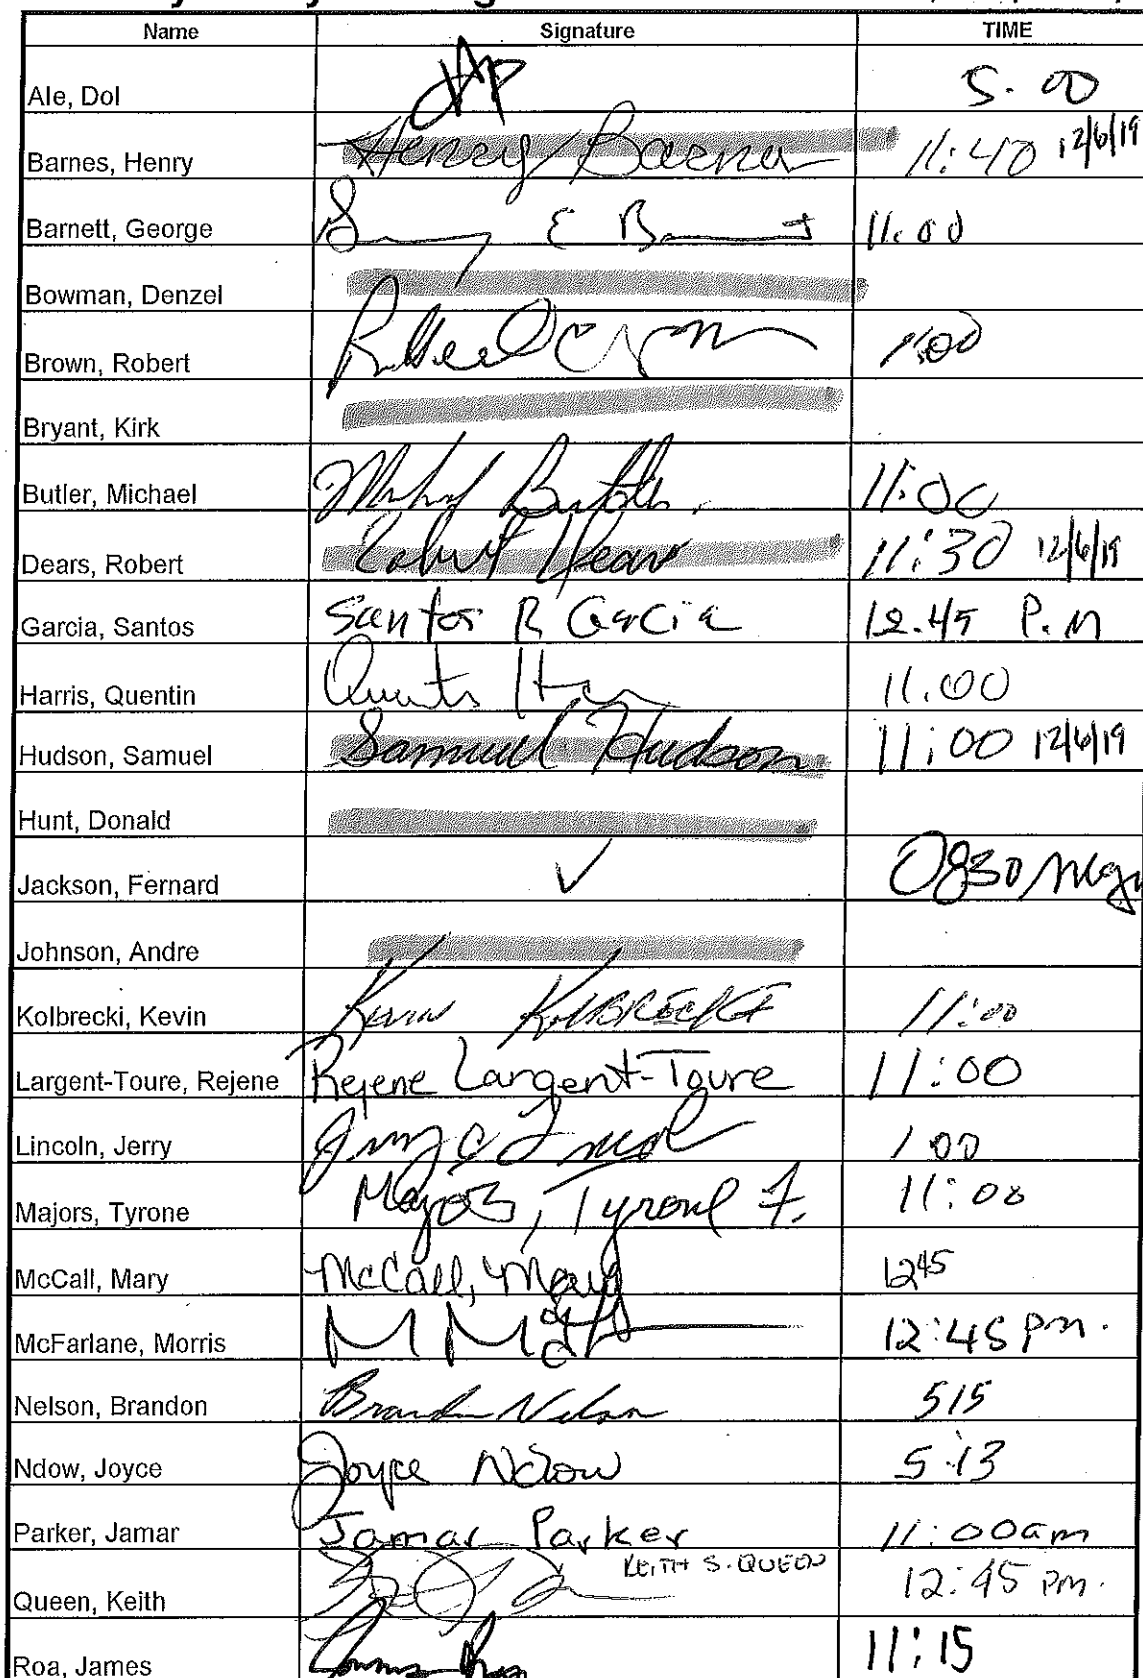 Name Signature TIME
Ale, Dol 5.00
Barnes, Henry Henry Barnes 11:40 12/6/19
Barnett, George E B 11:00
Bowman, Denzel
Brown, Robert 1:00
Bryant, Kirk
Butler, Michael Michael Butler 11:00
Dears, Robert Robert Dears 11:30 12/6/19
Garcia, Santos Santos R Garcia 12.45 P.M
Harris, Quentin 11.00
Hudson, Samuel Samuel Hudson 11:00 12/6/19
Hunt, Donald
Jackson, Fernard ✓ 0830
Johnson, Andre
Kolbrecki, Kevin Kevin KOLBRECKI 11:00
Largent-Toure, Rejene Rejene Largent-Toure 11:00
Lincoln, Jerry 1 00
Majors, Tyrone Majors, Tyrone F. 11:00
McCall, Mary McCall, Mary 1245
McFarlane, Morris 12:45 pm.
Nelson, Brandon Brandon Nelson 515
Ndow, Joyce Joyce Ndow 5:13
Parker, Jamar Jamar Parker 11:00am
Queen, Keith KEITH S. QUEEN 12:45 pm.
Roa, James 11:15